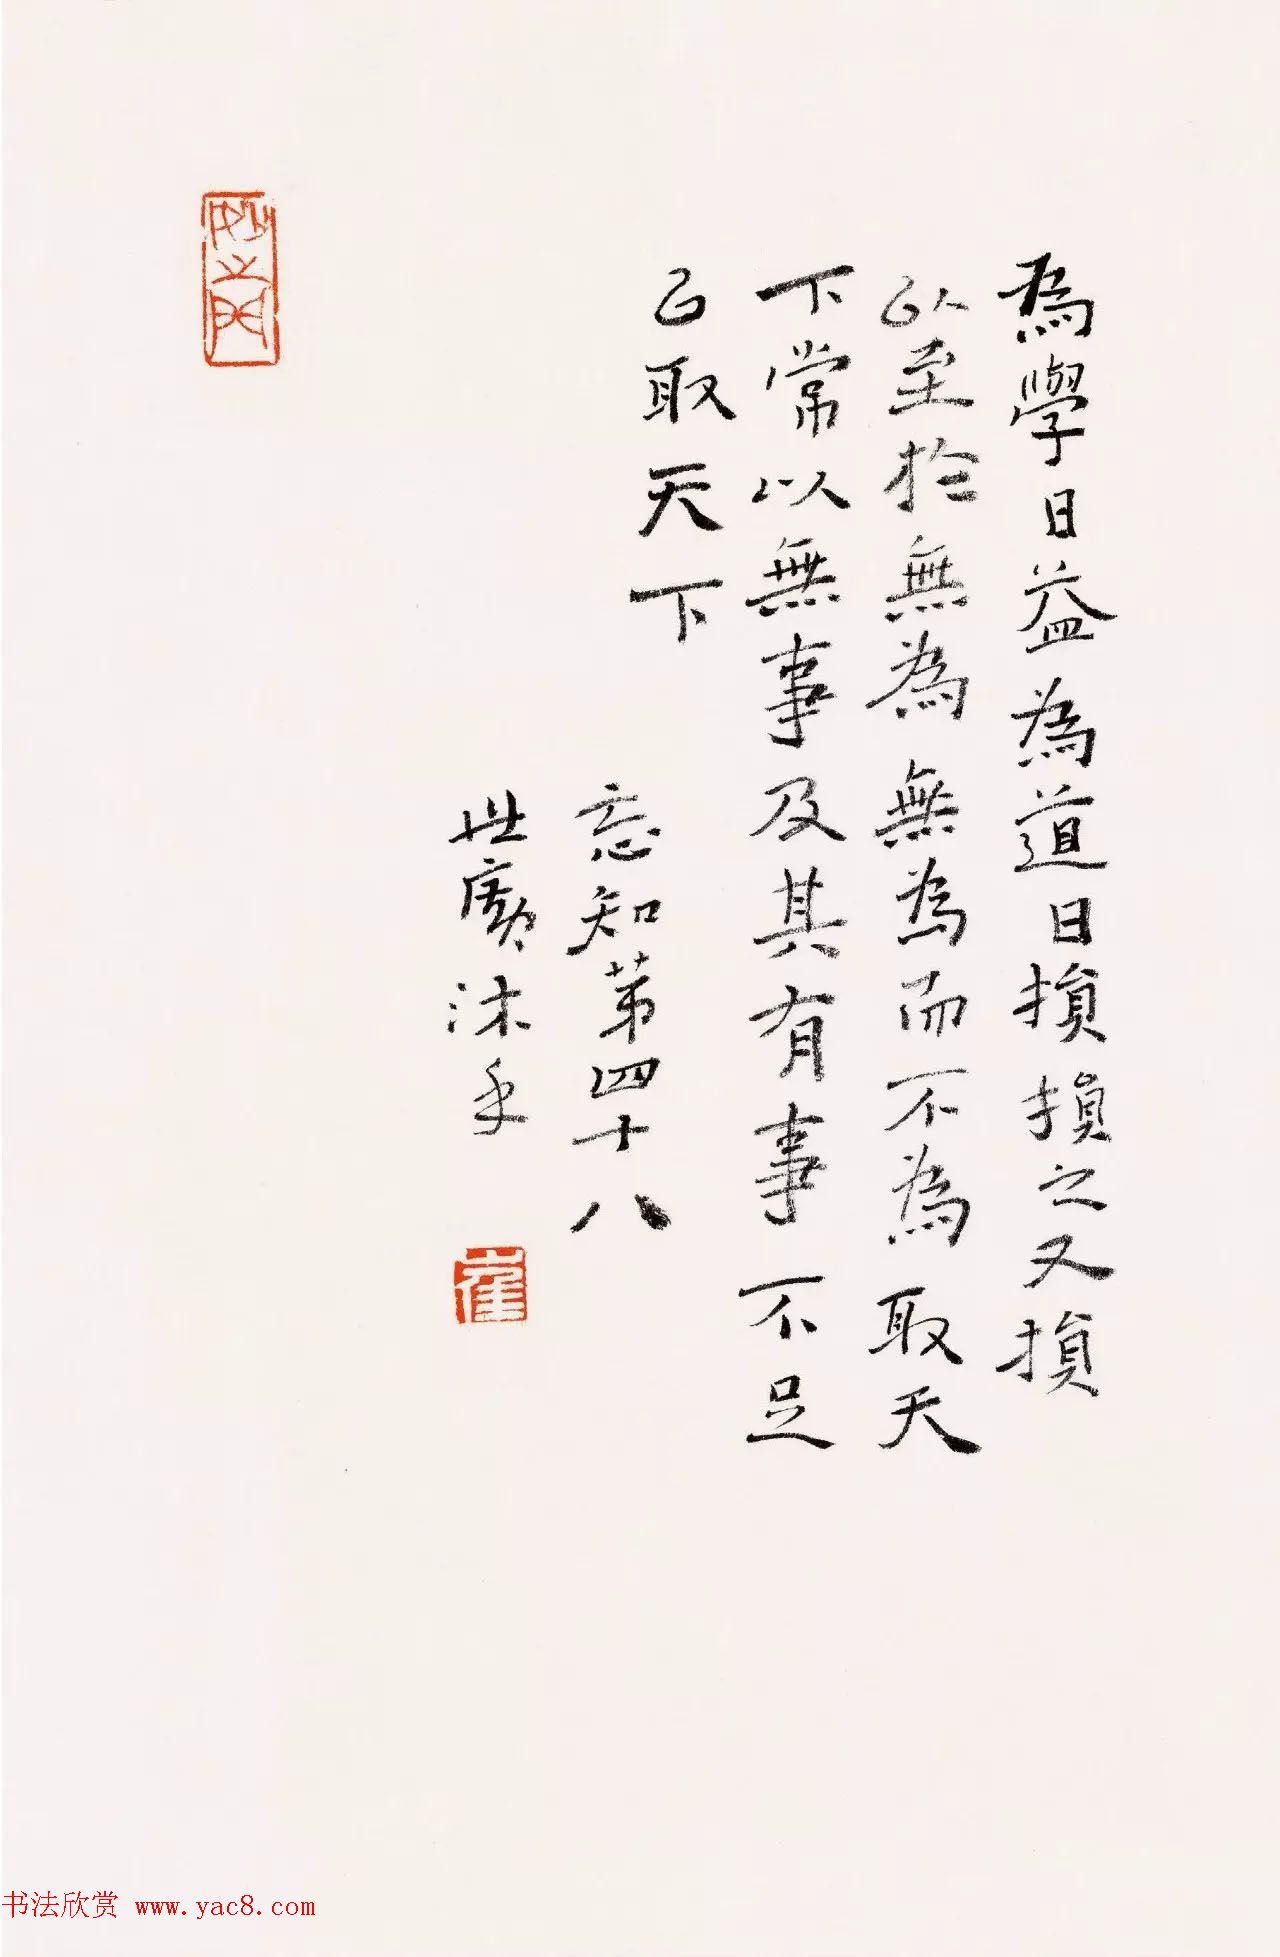 為學日益為道日損損之又損
以至於無為無為而不為取天
下常以無事及其有事不足
以取天下
忘知第四十八
世廣沐手
妙之門
崔
书法欣赏 www.yac8.com